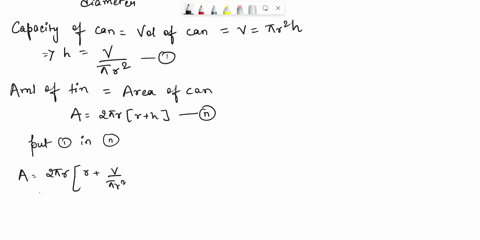 diameter
Capacity of can = Vol of can = V = πr²h
=> h = V/πr² — ①
Amt of tin = Area of can
A = 2πr [r+h] — ⓘⓘ
put ① in ⓘⓘ
A = 2πr [ r + V/πr²